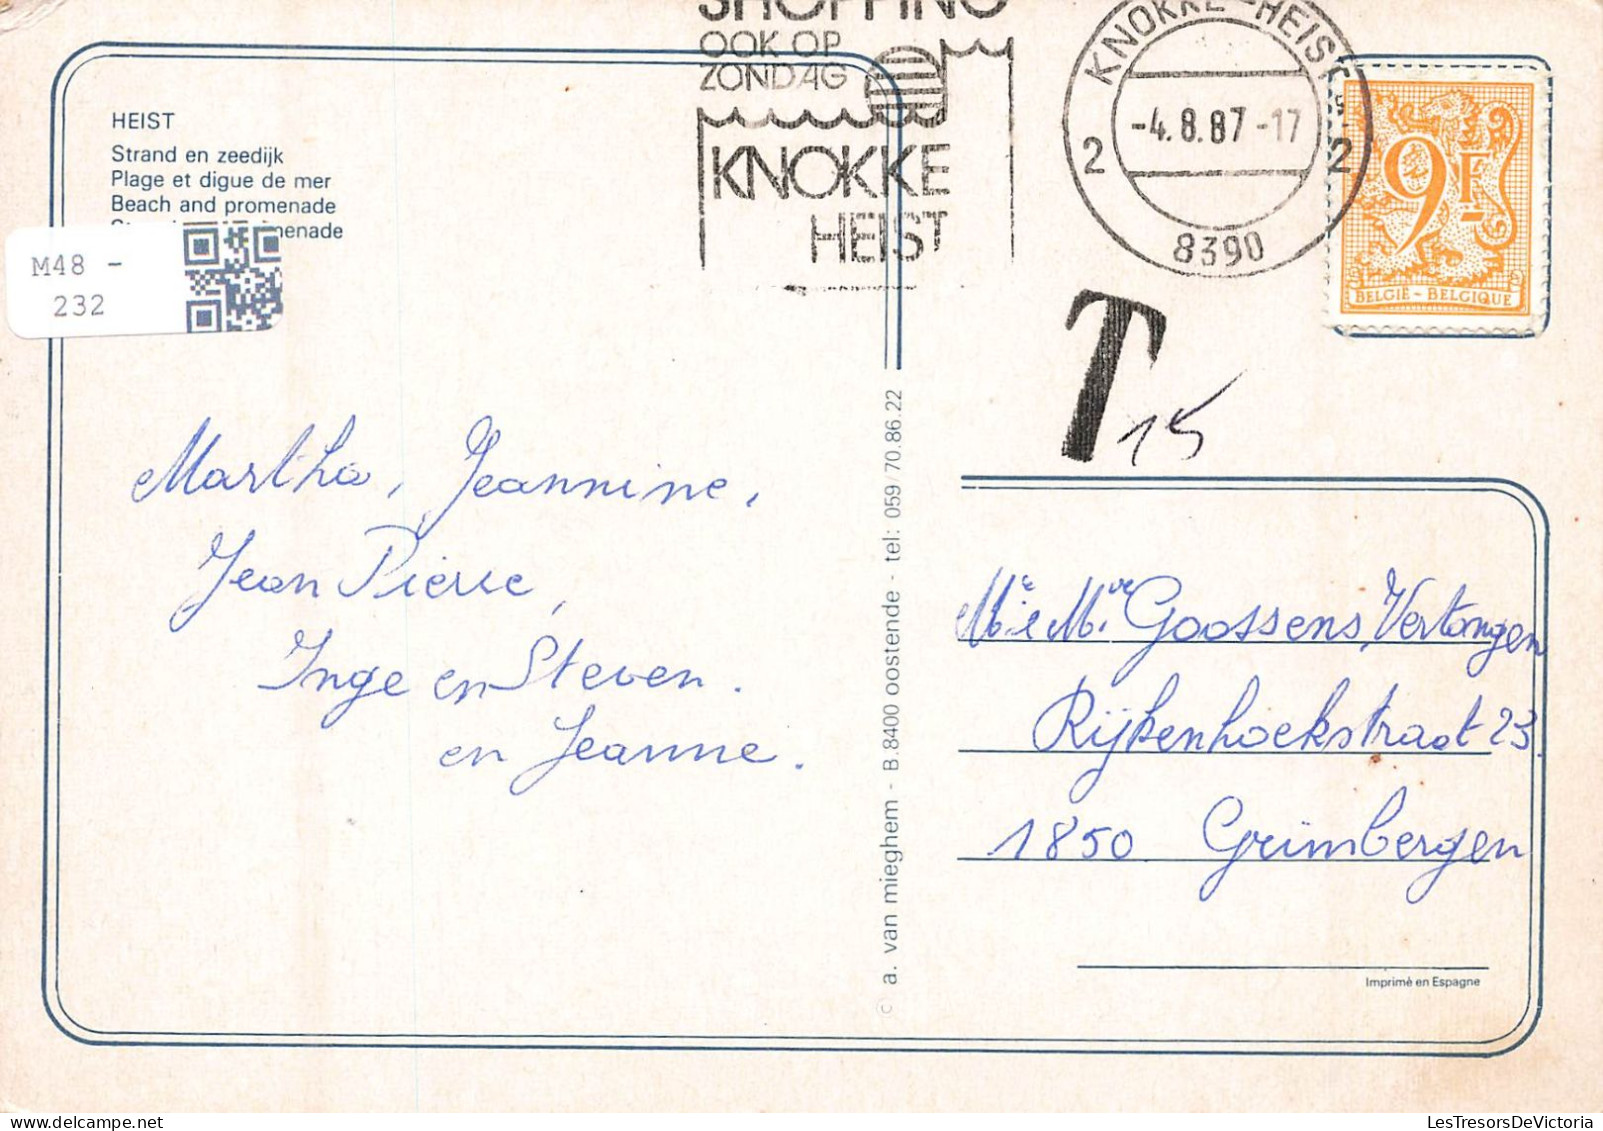 SHOPPING
OOK OP
ZONDAG
KNOKKE
HEIST
KNOKKE-HEIST
2 -4.8.87-17 2
8390
9F
BELGIË-BELGIQUE
T 15
HEIST
Strand en zeedijk
Plage et digue de mer
Beach and promenade
M48 -
232
Martha, Jeannine,
Jean Pierre,
Inge en Steven.
en Jeanne.
c a. van mieghem - B.8400 oostende - tel: 059/70.86.22
Mr e Mvr Goossens, Vertongen
Rijkenhoekstraat 23.
1850 Grimbergen
Imprimé en Espagne
LesTresorsDeVictoria